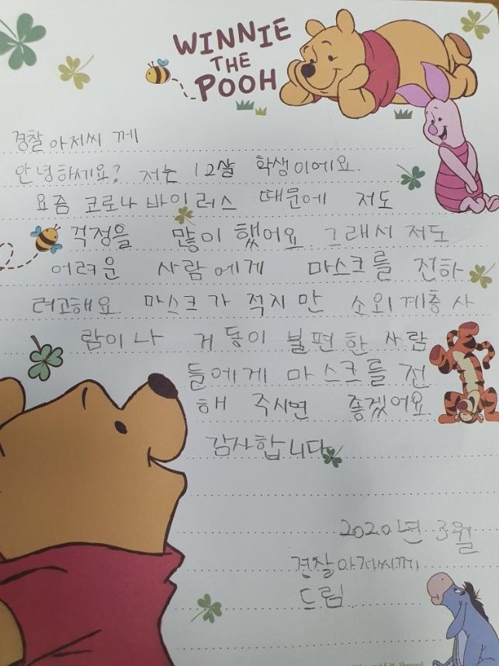 WINNIE
THE
POOH
경찰아저씨 께
안녕하세요? 저는 12살 학생이에요.
요즘 코로나 바이러스 때문에 저도
걱정을 많이 했어요 그래서 저도
어려운 사람에게 마스크를 전하
려고해요. 마스크가 적지만 소외계층사
람이나 거동이 불편한 사람
들에게 마스크를 전
해 주시면 좋겠어요
감사합니다
2020년 3월
경찰아저씨께
드림